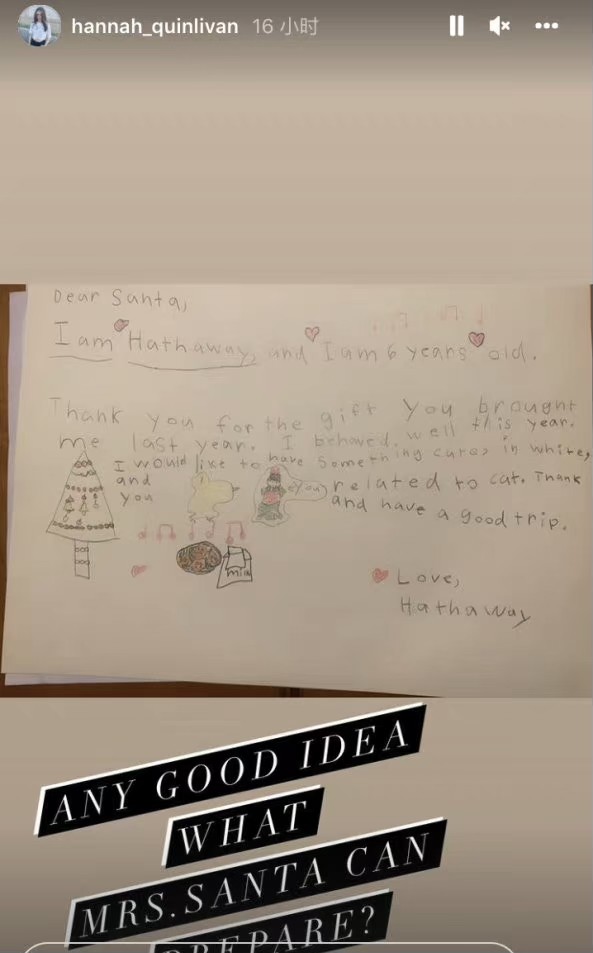 hannah_quinlivan 16 小时
Dear Santa,
I am Hathaway, and I am 6 years old.
Thank you for the gift you brought
me last year. I behaved well this year.
I would like to have something cute, in white,
and related to cat. Thank
you and have a good trip.
you
milk
Love,
Hathaway
ANY GOOD IDEA
WHAT
MRS.SANTA CAN
PREPARE?